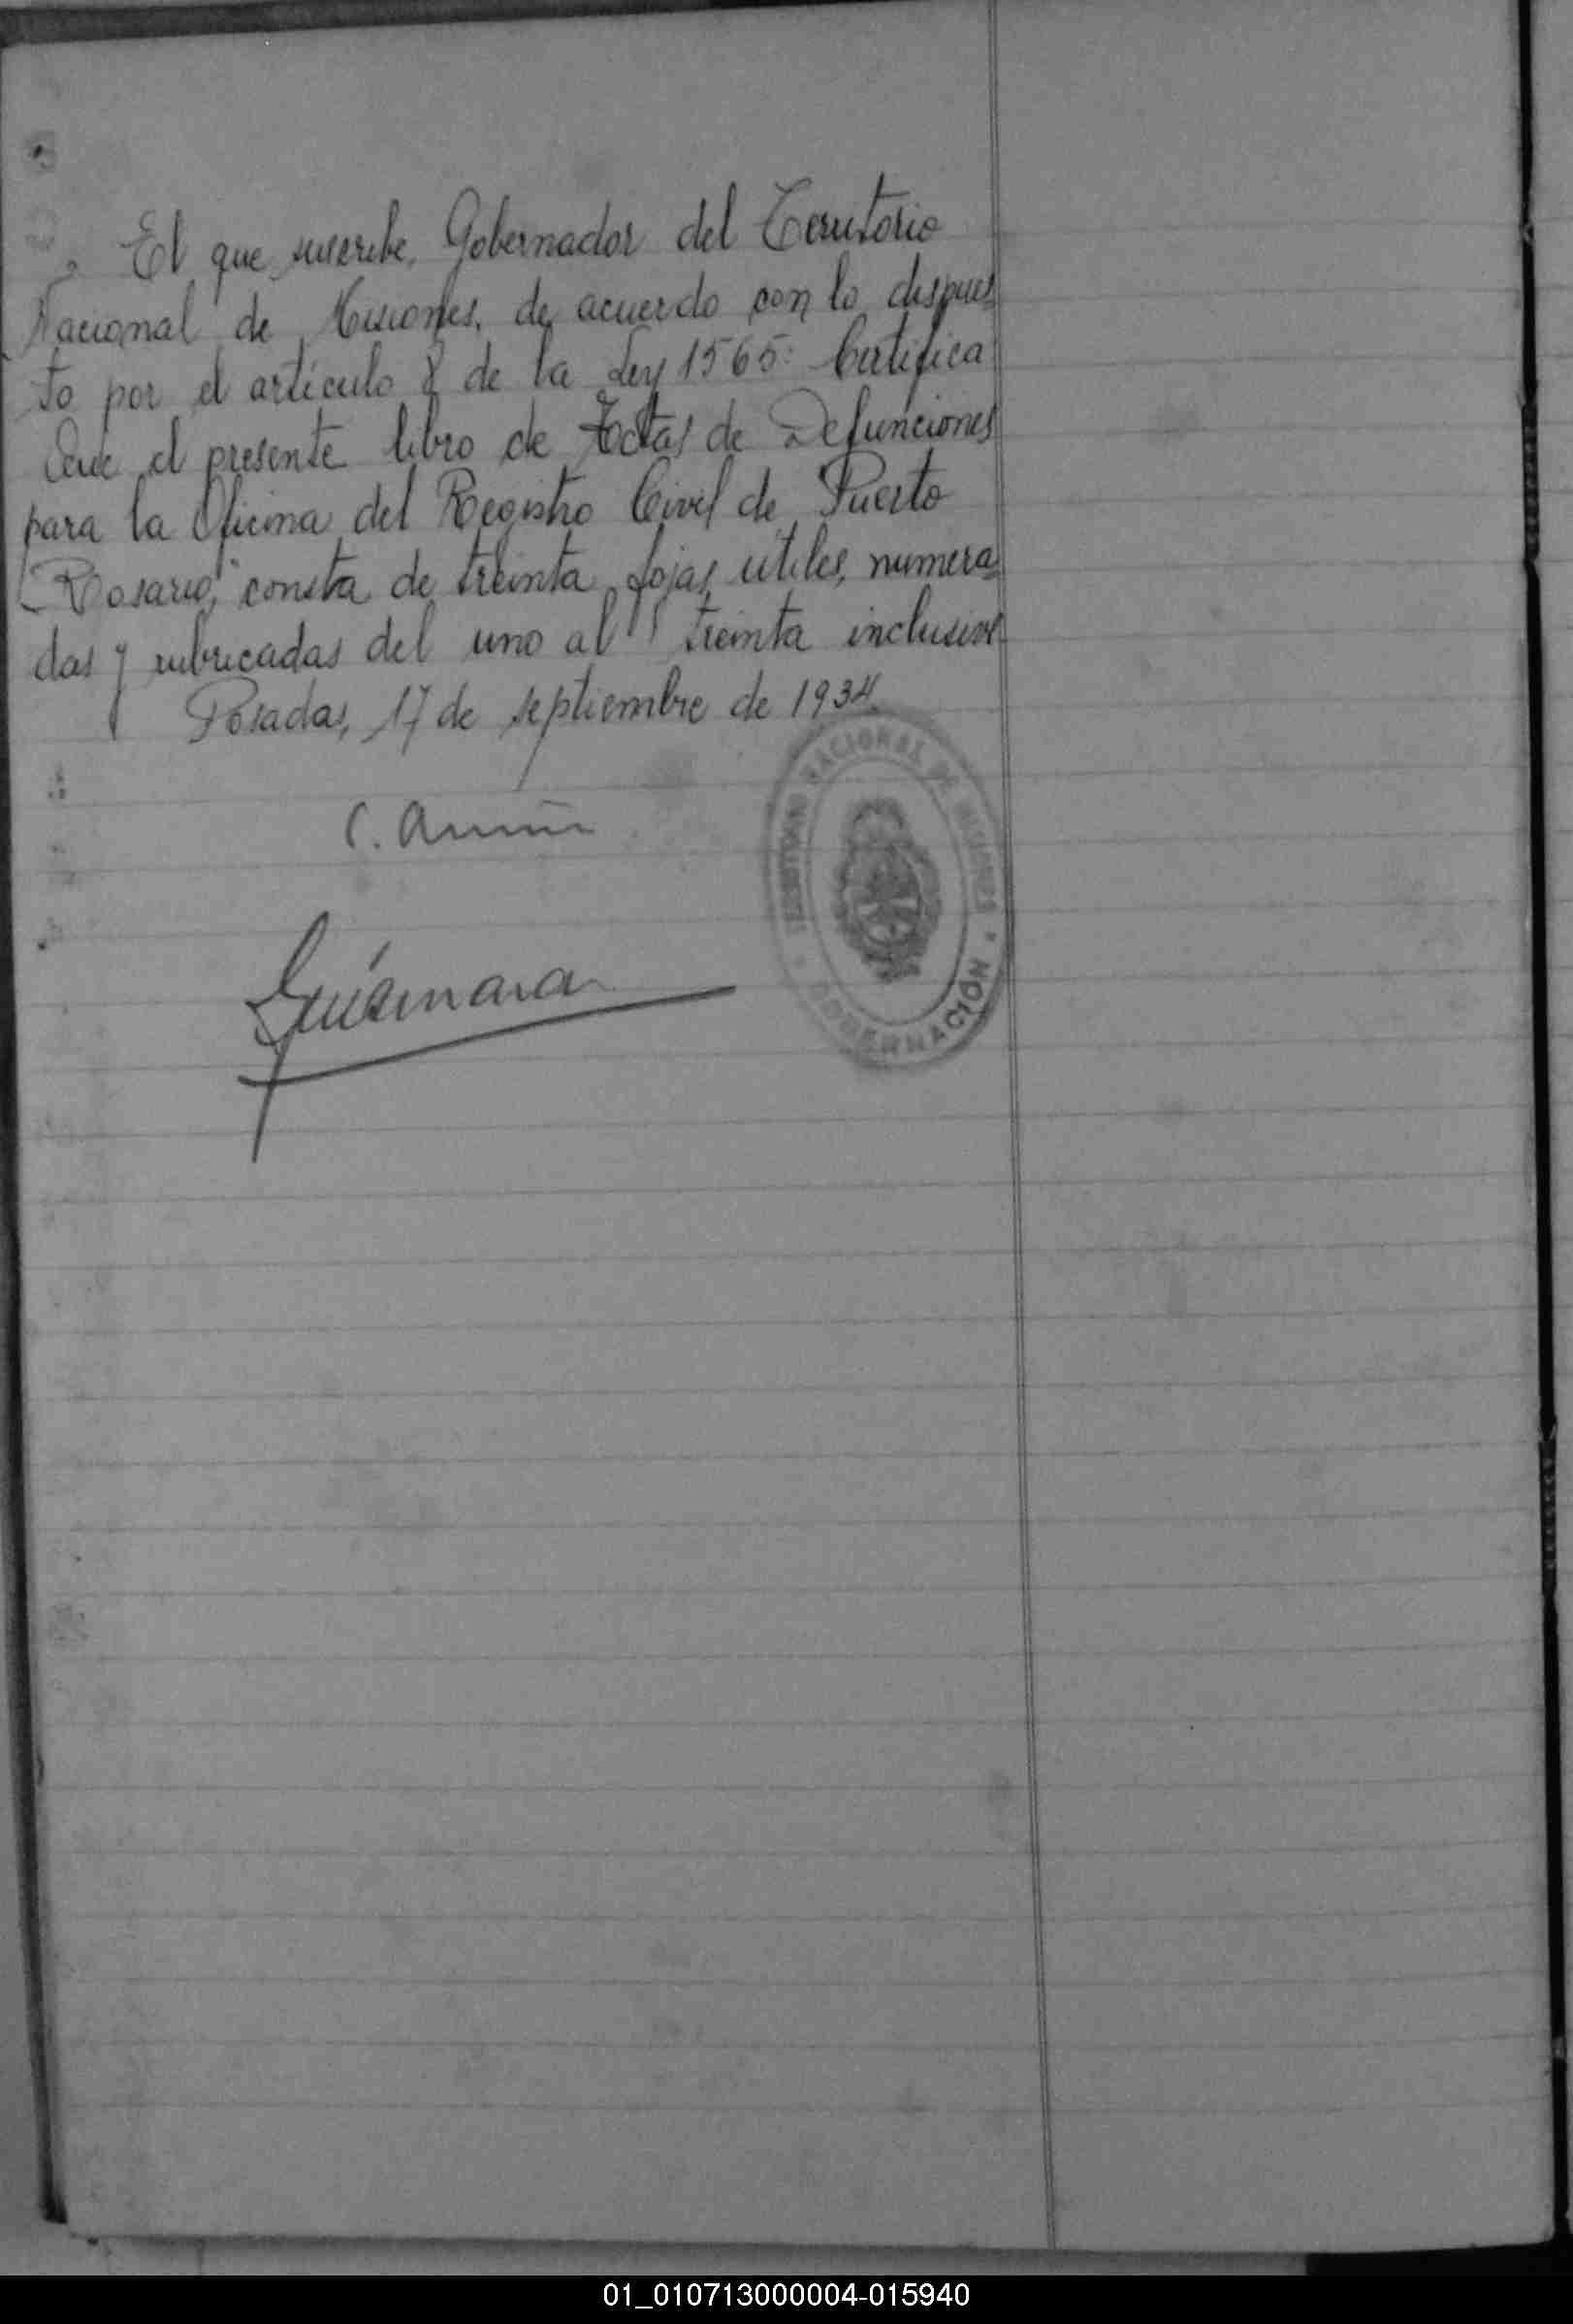 El que suscribe, Gobernador del Territorio
Nacional de Misiones, de acuerdo con lo dispues
to por el artículo 8 de la Ley 1565: Certifica
Que el presente libro de Actas de Defunciones
para la Oficina del Registro Civil de "Puerto
Rosario", consta de treinta fojas útiles, numera
das y rubricadas del uno al treinta inclusive
Posadas, 17 de septiembre de 1934.
TERRITORIO NACIONAL DE MISIONES
GOBERNACIÓN
C.
01_010713000004-015940